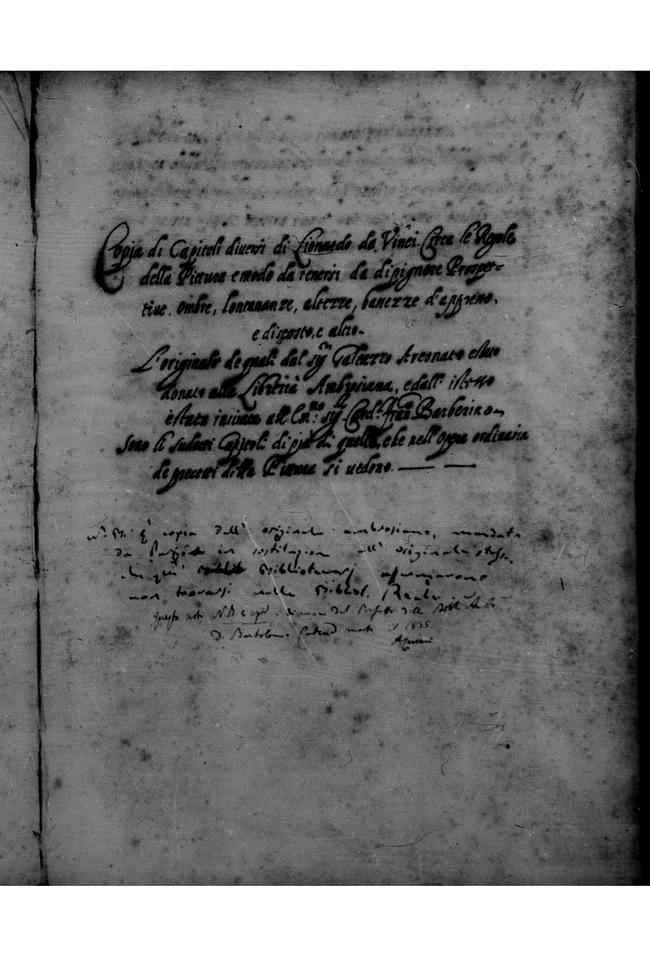 Copia di Capitoli diversi di Lionardo da Vinci Circa le Regole
della Pittura e modo da tenersi da dipignere Prospet=
tiue. ombre, lontananze, altezze, bassezze d'appreso.
e discosto, e altro.
L'originale de quali dal sig.r Galeazzo Arconato è stato
donato alla Libreria Ambrosiana, e dall' istesso
è stata inuiata all'Em.mo sig.r Card.le Fran.co Barberino
sono li sudetti Capitoli di più di quelli, che nell'opera ordinaria
de precetti della Pittura si uedono.
È copia dell' originale ambrosiano, mandata
da Parigi in sostituzion all' originale stesso,
che que' Bibliotecarj
non trovarsi nella Bibliot. Reale
Questa nota N.B. è di mano del della Bibl.
D. Bartolomeo morto 1835